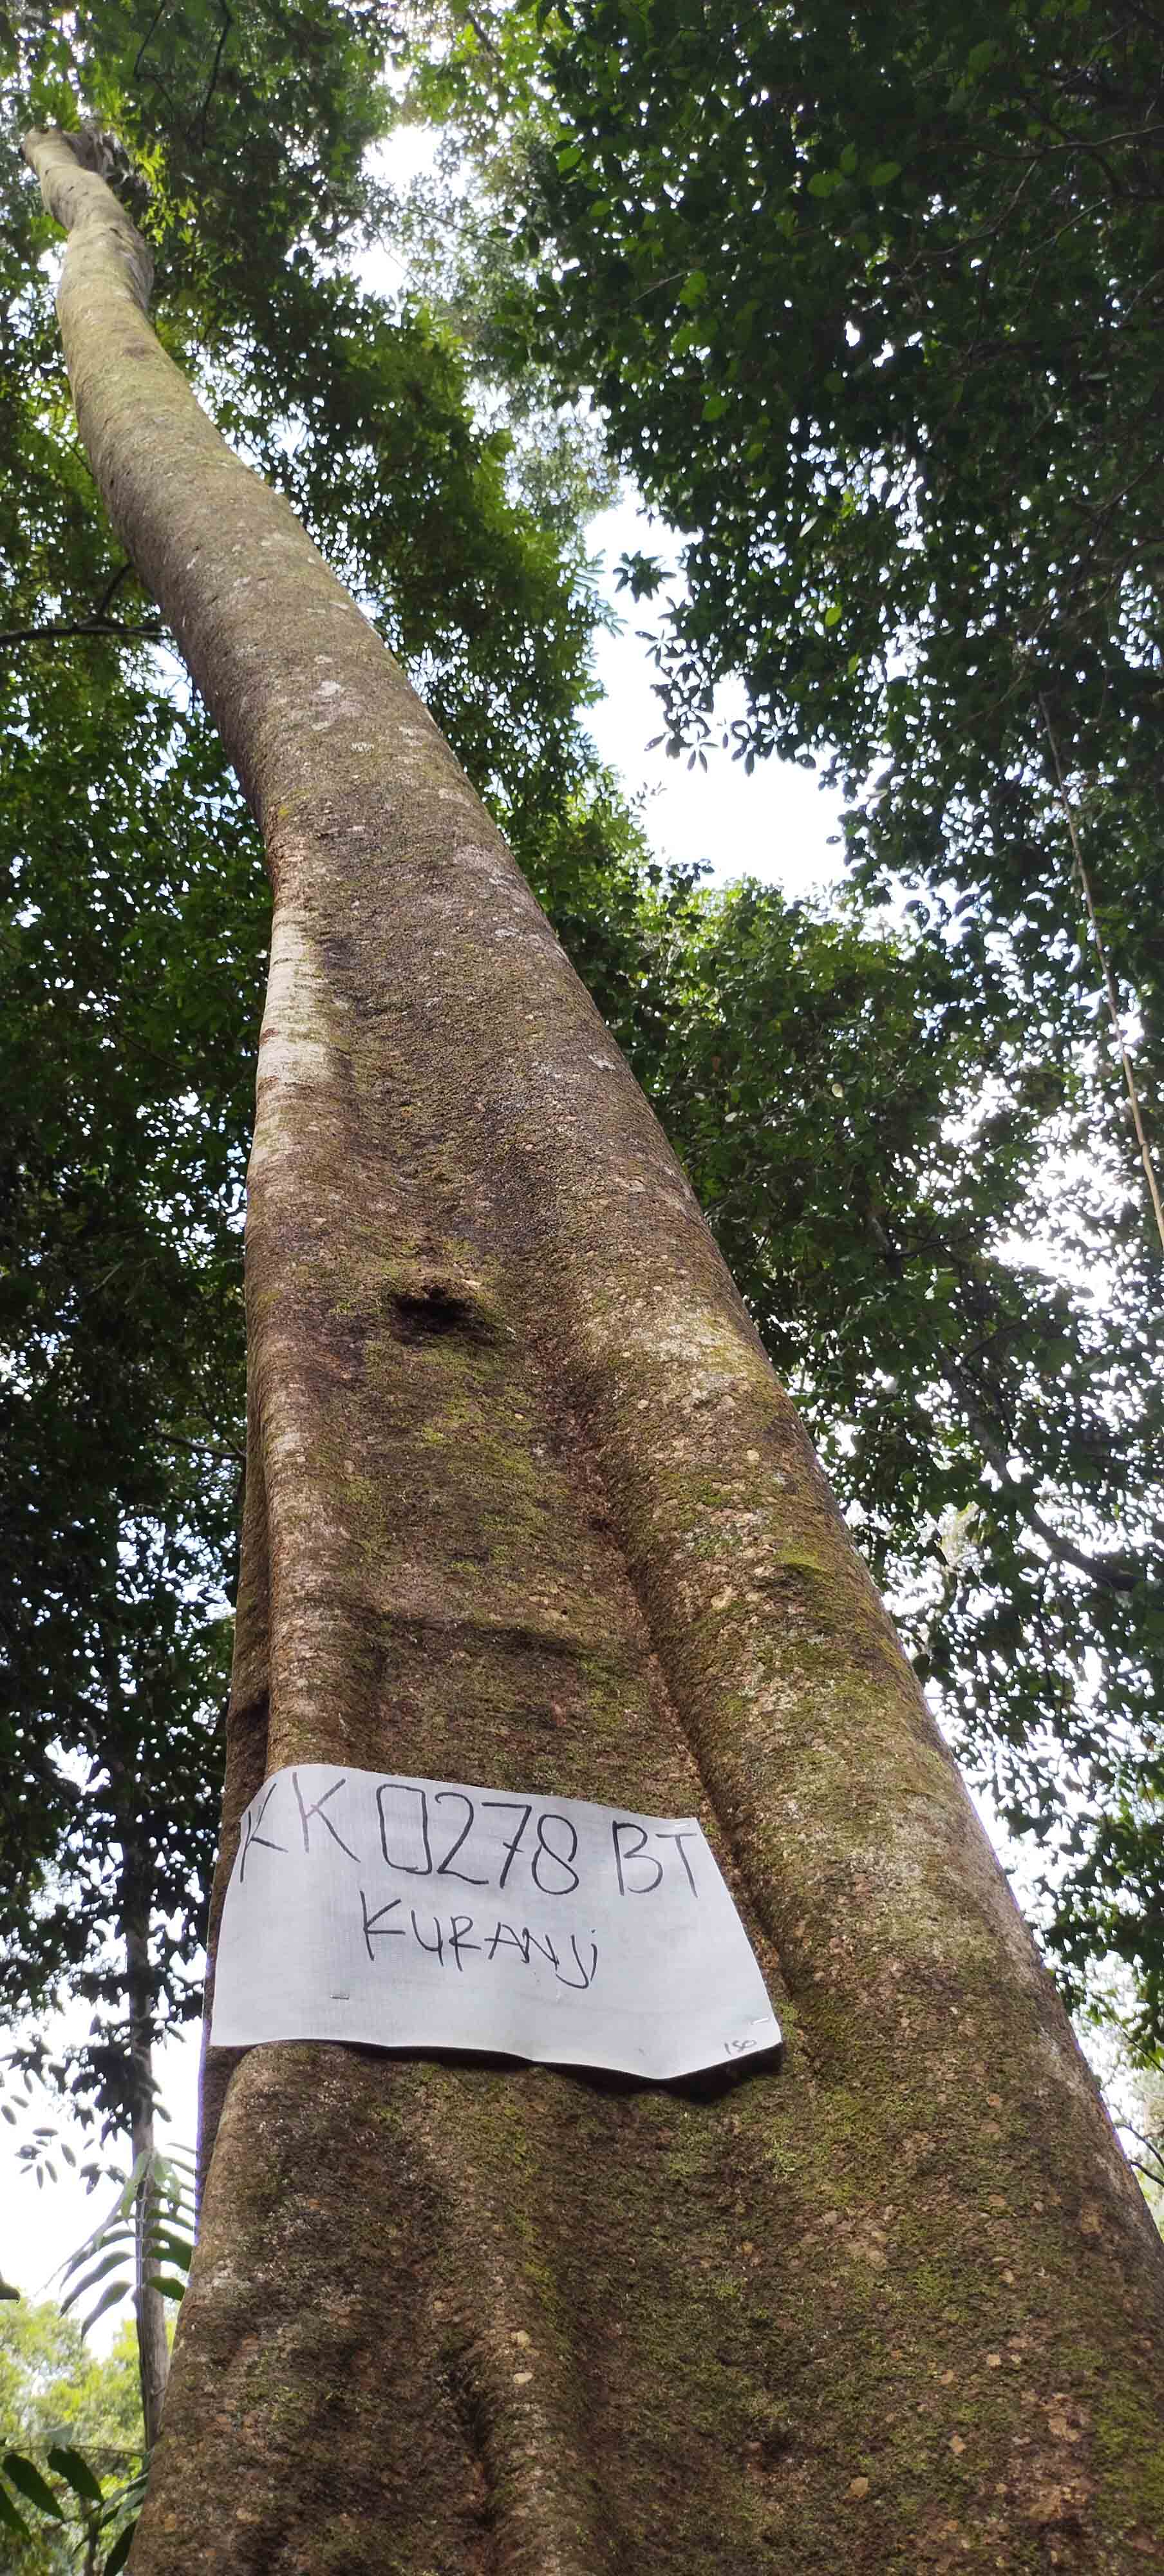 KK 0278 BT
KURANji
150